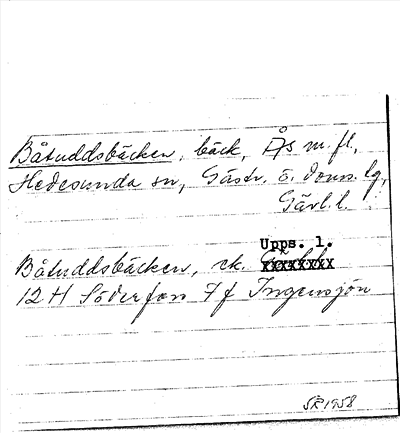 Båtuddsbäcken, bäck, Ås m.fl.,
Hedesunda sn, Gästr. ö. doms. lg,
Gävl. l.
Upps. l.
Båtuddsbäcken, ek. XXXXXXXX
12 H Söderfors 7 f Ingensjön
SR 1958